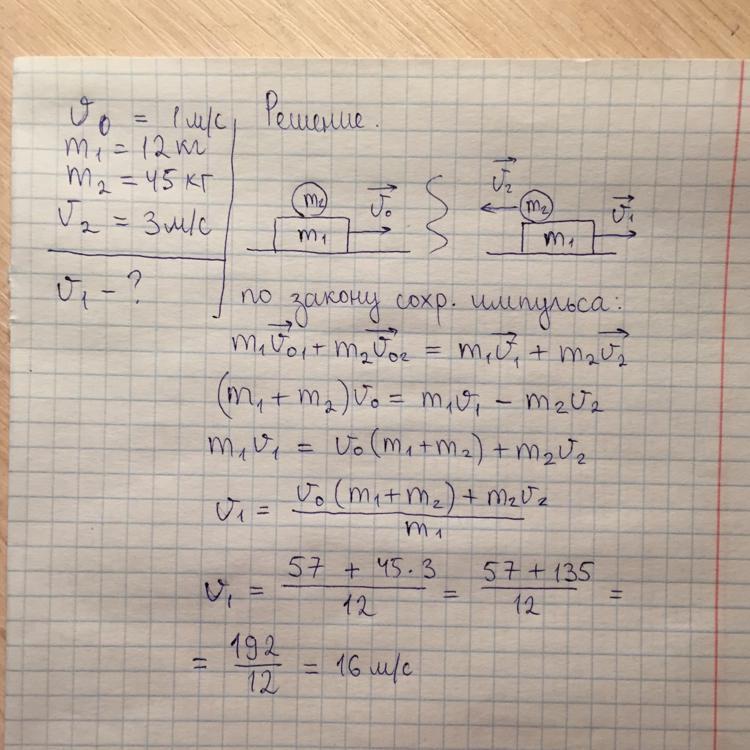 υ₀ = 1 м/с
m₁ = 12 кг
m₂ = 45 кг
υ₂ = 3 м/с
υ₁ – ?
Решение.
m₂
m₁
υ⃗₀
υ⃗₂
m₂
m₁
υ⃗₁
по закону сохр. импульса:
m₁υ⃗₀₁ + m₂υ⃗₀₂ = m₁υ⃗₁ + m₂υ⃗₂
(m₁ + m₂)υ₀ = m₁υ₁ – m₂υ₂
m₁υ₁ = υ₀(m₁+m₂) + m₂υ₂
υ₁ = υ₀(m₁+m₂) + m₂υ₂ / m₁
υ₁ = 57 + 45·3 / 12 = 57 + 135 / 12 =
= 192 / 12 = 16 м/с